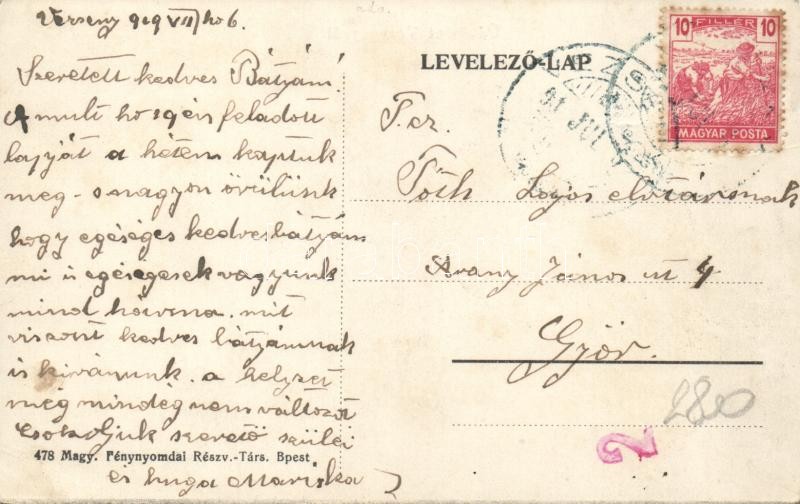 Verseny 919 VII/ho 6.
Szeretett kedves Bátyám!
A mult ho 19én feladott
lapját a héten kaptuk
meg - s nagyon örülünk
hogy egéséges kedves bátyám
mi is egéségesek vagyunk
mind hárman. mit
viszont kedves bátyámnak
is kivánunk. a helyzet
még mindég nem változot
Csókoljuk szerető szülei
és huga Mariska
478 Magy. Fénynyomdai Részv.-Társ. Bpest
LEVELEZŐ-LAP
10 FILLÉR 10
MAGYAR POSTA
T. cz.
Tóth Lajos elvtársnak
Arany János út 4
Győr.
2800
2